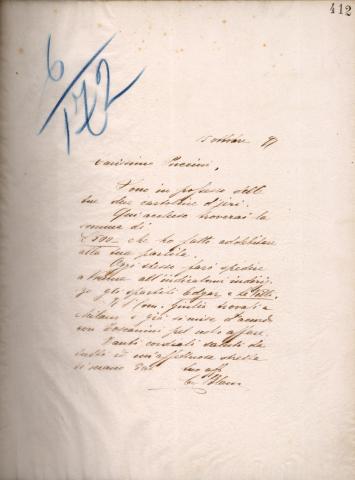 412
6
172
5 ottobre 97
Carissimo Puccini,
Sono in possesso delle
tue due cartoline d'jeri.
Qui accluso troverai la
somma di
£ 500 – che ho fatto addebitare
alla tua partita.
Oggi stesso farò spedire
a all'indicatomi indiriz-
zo gli spartiti Edgar e le Villi.
Il Sm. Giulio trovasi a
Milano e già si mise d'accordo
con Toscanini pel noto affare.
Tanti cordiali saluti da
tutti ed un'affettuosa stretta
di mano dal
tuo aff.